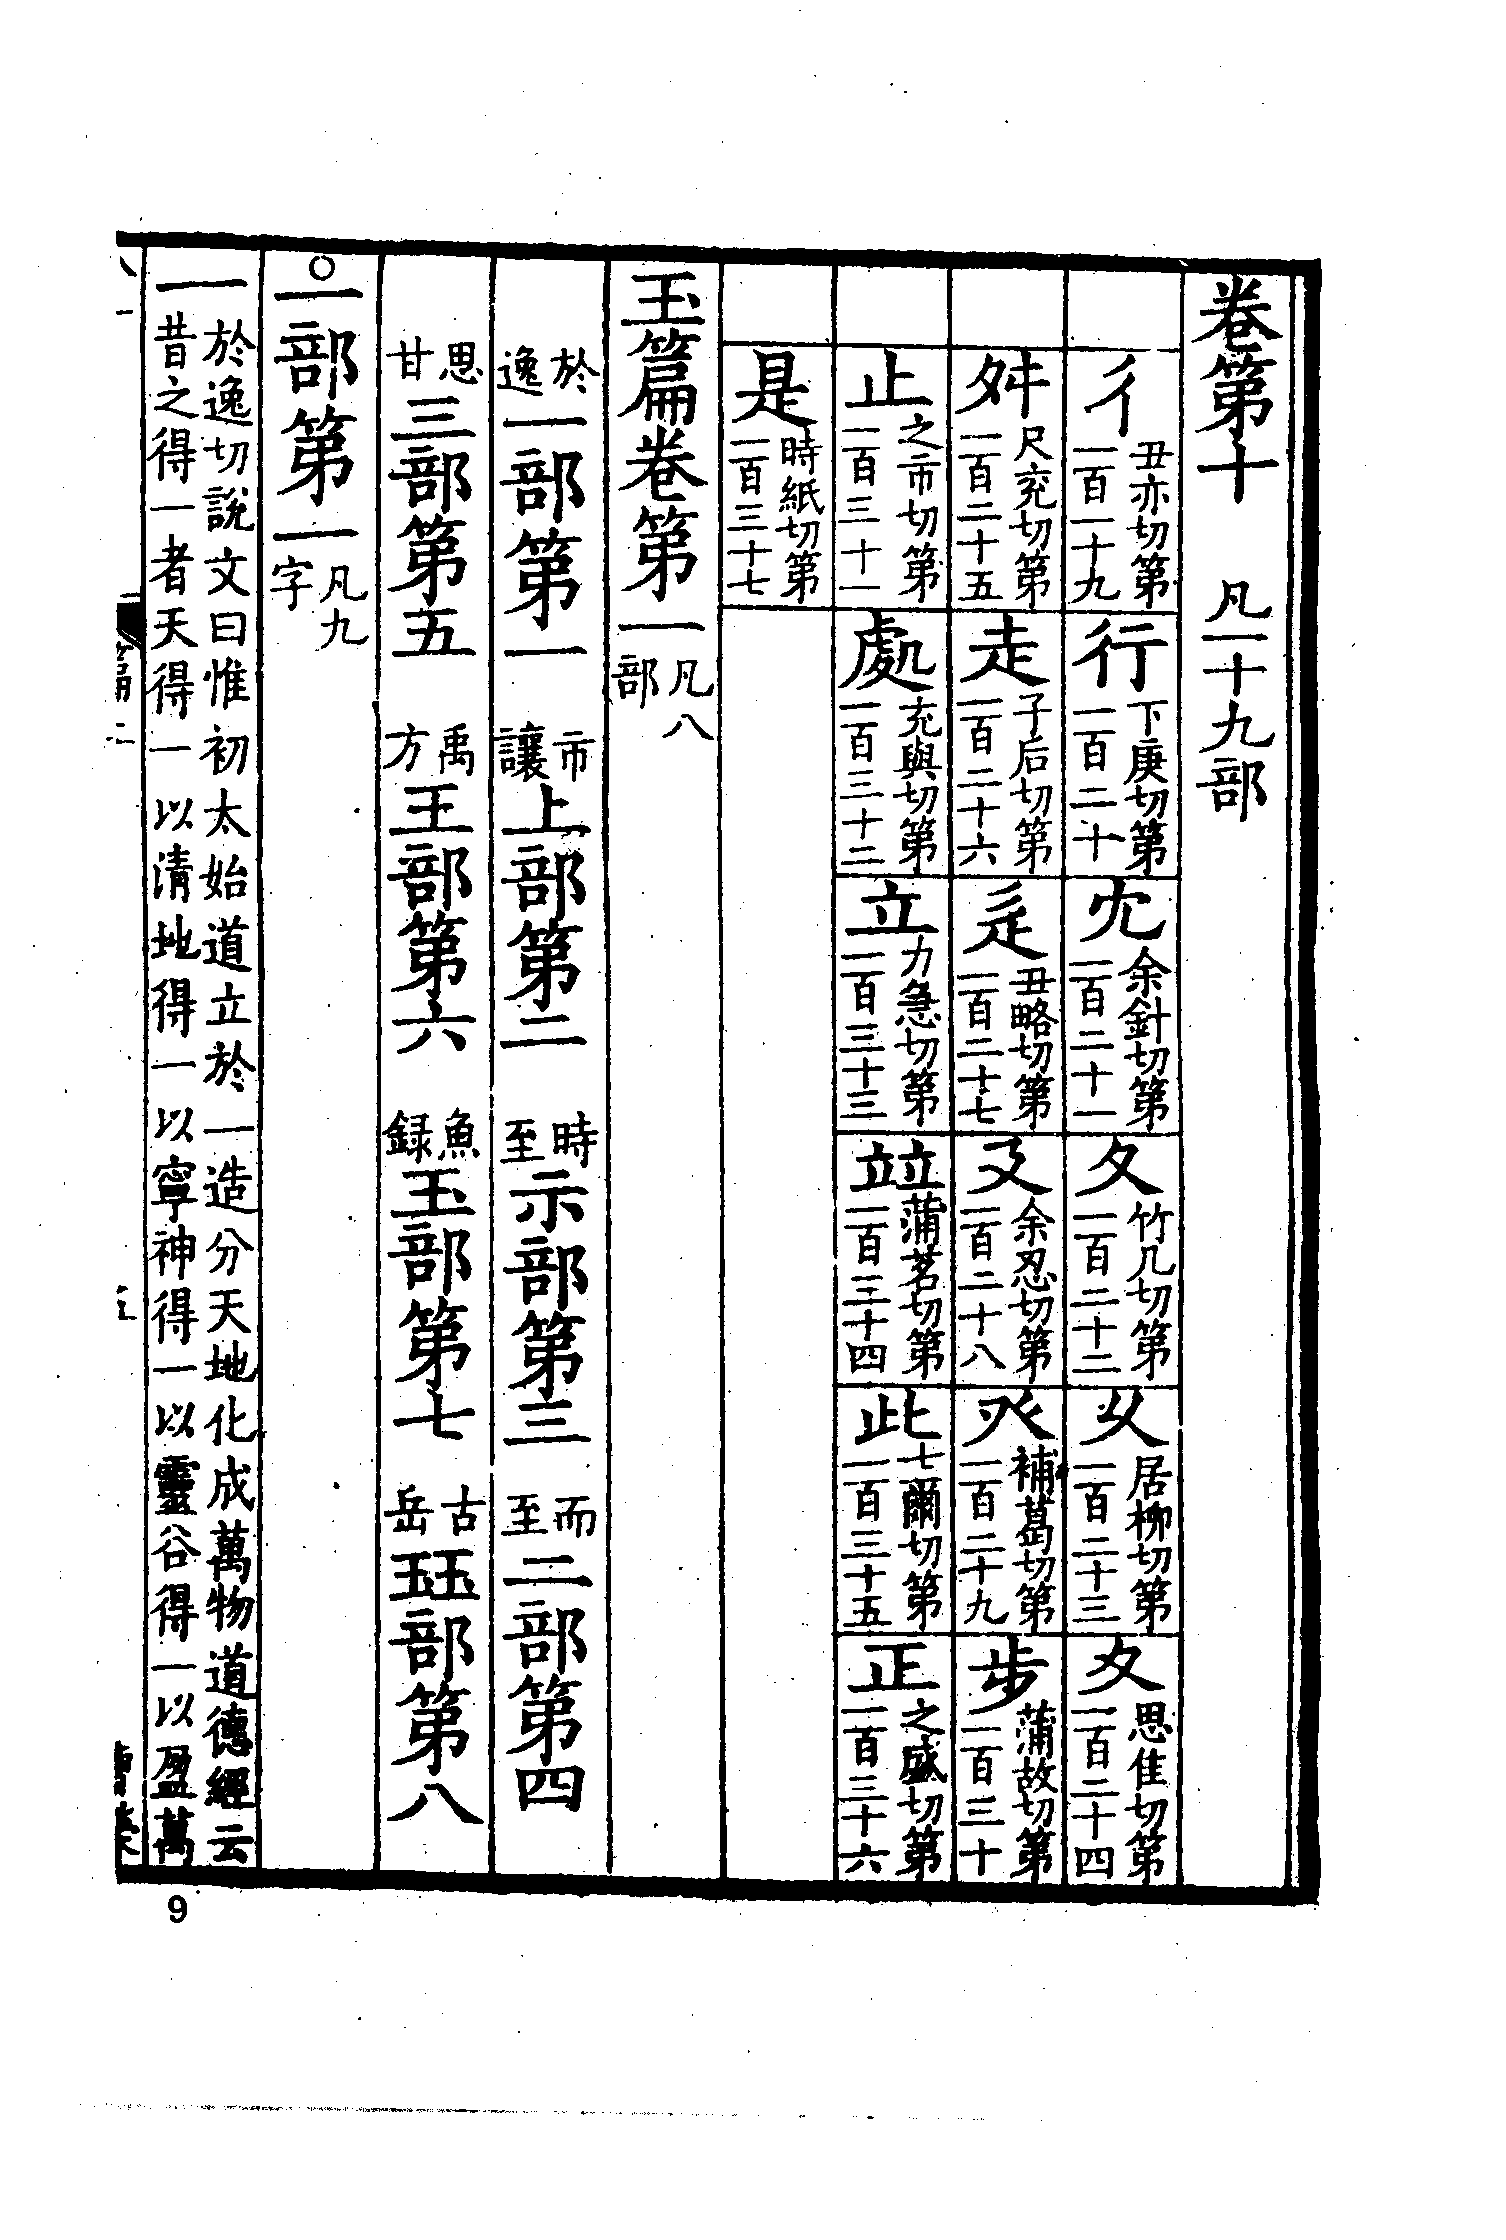 卷第十　凡一十九部
彳丑亦切第一百一十九　行下庚切第一百二十　冘余針切第一百二十一　夂竹几切第一百二十二　久居柳切第一百二十三　夊思隹切第一百二十四
舛尺兖切第一百二十五　走子后切第一百二十六　辵丑略切第一百二十七　廴余忍切第一百二十八　癶補葛切第一百二十九　步蒲故切第一百三十
止之市切第一百三十一　處充與切第一百三十二　立力急切第一百三十三　竝蒲茗切第一百三十四　此七爾切第一百三十五　正之盛切第一百三十六
是時紙切第一百三十七
玉篇卷第一凡八部
於逸一部第一　市讓上部第二　時至示部第三　而至二部第四
思甘三部第五　禹方王部第六　魚録玉部第七　古岳玨部第八
○一部第一凡九字
一於逸切說文曰惟初太始道立於一造分天地化成萬物道德經云
昔之得一者天得一以清地得一以寧神得一以靈谷得一以盈萬
9